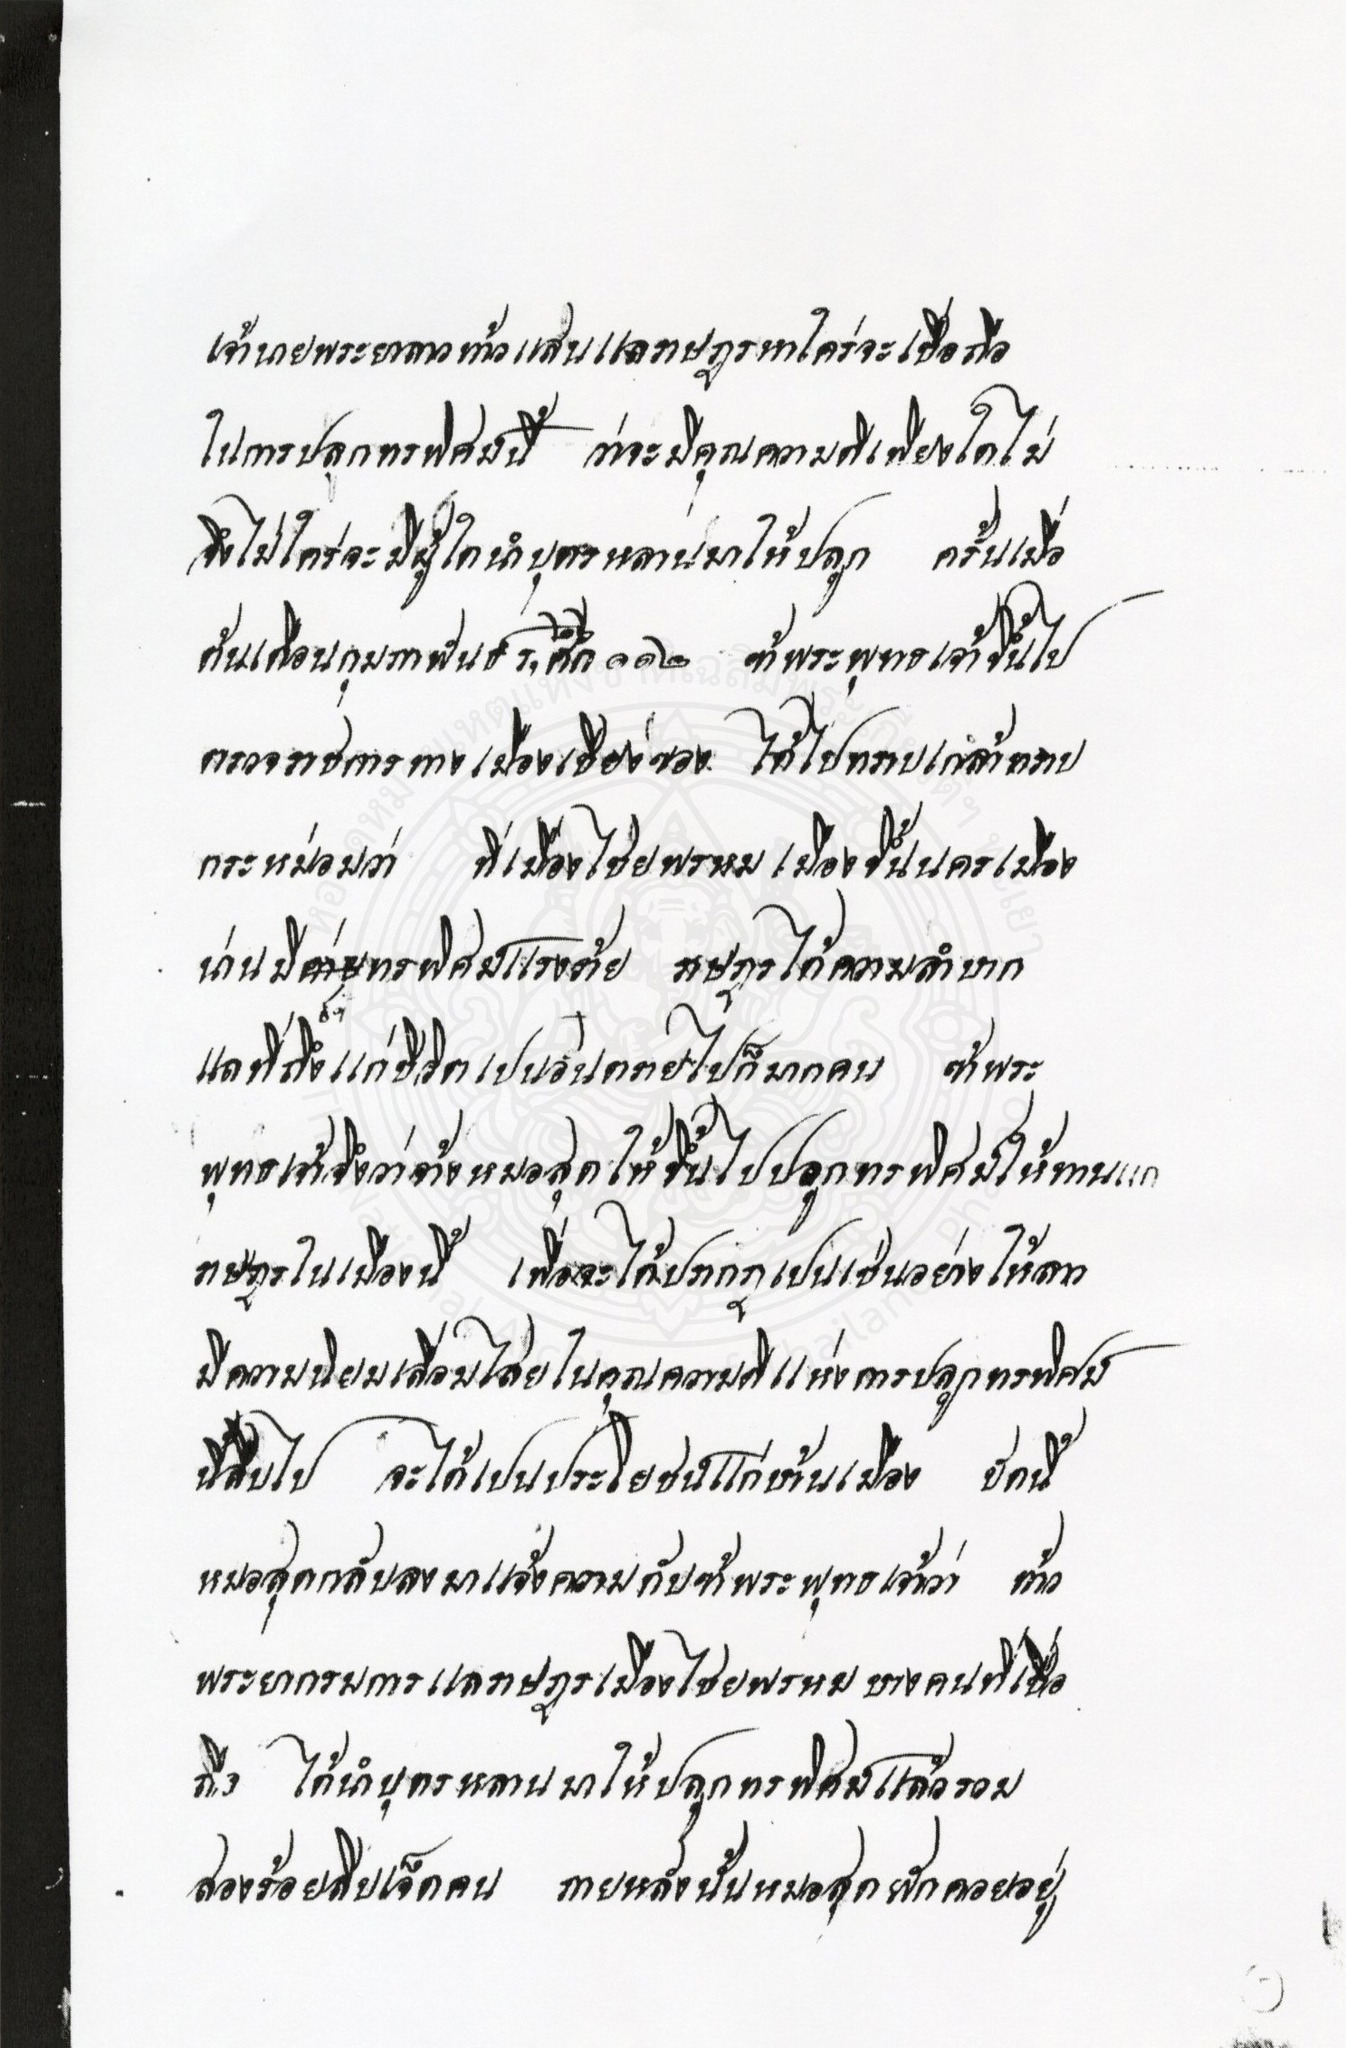 เจ้านายพระยาลาวท้าวแสนแลราษฎรหาใคร่จะเชื่อถือ
ในการปลูกทรพิศม์นี้ ว่าจะมีคุณความดีเพียงใดไม่
จึงไม่ใคร่จะมีผู้ใดนำบุตรหลานมาให้ปลูก ครั้นเมื่อ
ต้นเดือนกุมภาพันธ์ ร,ศก ๑๑๒ ข้าพระพุทธเจ้าขึ้นไป
ตรวจราชการทางเมืองเชียงของ ได้ไปทราบเกล้าทราบ
กระหม่อมว่า ที่เมืองไชยพรหม เมืองขึ้นนครเมือง
น่านมีทรพิศม์แรงร้าย ราษฎรได้ความลำบาก
แลที่ถึงแก่ชีวิตเปนอันตรายไปก็มากคน ข้าพระ
พุทธเจ้าจึงว่าจ้างหมอสุดให้ขึ้นไปปลูกทรพิศม์ให้ทานแก่
ราษฎรในเมืองนี้ เพื่อจะได้ปรากฎเปนเช่นอย่างให้ลาว
มีความนิยมเลื่อมไสยในคุณความดีแห่งการปลูกทรพิศม์
นี้สืบไป จะได้เปนประโยชน์แก่บ้านเมือง บัดนี้
หมอสุดกลับลงมาแจ้งความกับข้าพระพุทธเจ้าว่า ท้าว
พระยากรมการแลราษฎรเมืองไชยพรหม บางคนที่เชื่อ
ถือ ได้นำบุตรหลานมาให้ปลูกทรพิศม์แล้วรวม
สองร้อยสิบเจ็ดคน ภายหลังนั้นหมอสุดพักคอยอยู่